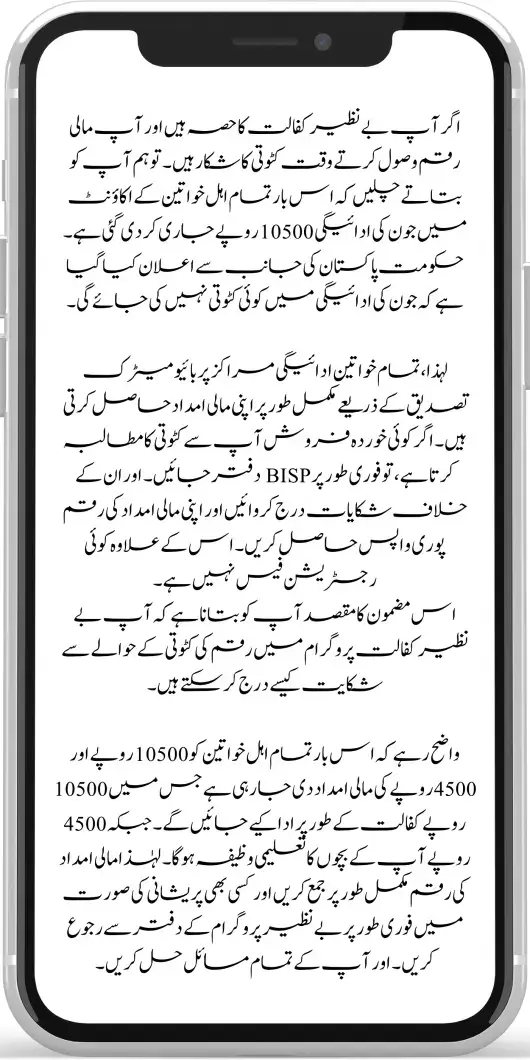 اگر آپ بے نظیر کفالت کا حصہ ہیں اور آپ مالی
رقم وصول کرتے وقت کٹوتی کا شکار ہیں۔ تو ہم آپ کو
بتاتے چلیں کہ اس بار تمام اہل خواتین کے اکاؤنٹ
میں جون کی ادائیگی 10500 روپے جاری کر دی گئی ہے۔
حکومت پاکستان کی جانب سے اعلان کیا گیا
ہے کہ جون کی ادائیگی میں کوئی کٹوتی نہیں کی جائے گی۔
لہذا، تمام خواتین ادائیگی مراکز پر بائیو میٹرک
تصدیق کے ذریعے مکمل طور پر اپنی مالی امداد حاصل کرتی
ہیں۔ اگر کوئی خوردہ فروش آپ سے کٹوتی کا مطالبہ
کرتا ہے، تو فوری طور پر BISP دفتر جائیں۔ اور ان کے
خلاف شکایات درج کروائیں اور اپنی مالی امداد کی رقم
پوری واپس حاصل کریں۔ اس کے علاوہ کوئی
رجسٹریشن فیس نہیں ہے۔
اس مضمون کا مقصد آپ کو بتانا ہے کہ آپ بے
نظیر کفالت پروگرام میں رقم کی کٹوتی کے حوالے سے
شکایت کیسے درج کر سکتے ہیں۔
واضح رہے کہ اس بار تمام اہل خواتین کو 10500 روپے اور
4500 روپے کی مالی امداد دی جا رہی ہے جس میں 10500
روپے کفالت کے طور پر ادا کیے جائیں گے۔ جبکہ 4500
روپے آپ کے بچوں کا تعلیمی وظیفہ ہوگا۔ لہٰذا مالی امداد
کی رقم مکمل طور پر جمع کریں اور کسی بھی پریشانی کی صورت
میں فوری طور پر بے نظیر پروگرام کے دفتر سے رجوع
کریں۔ اور آپ کے تمام مسائل حل کریں۔